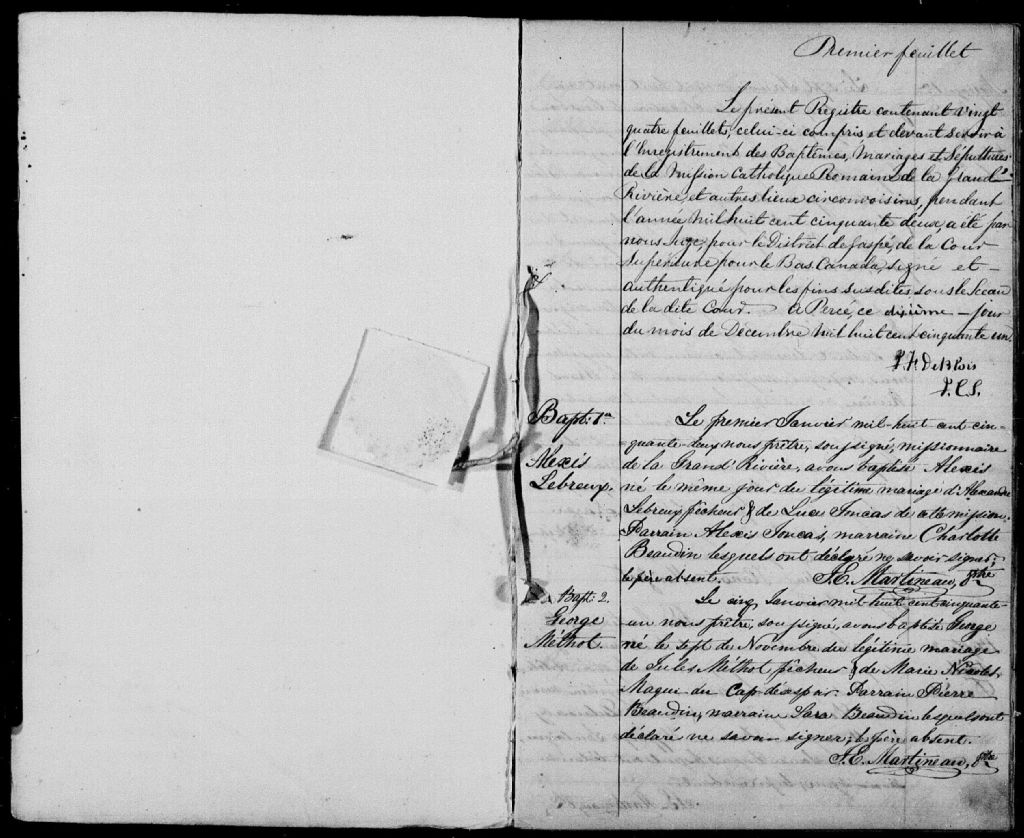 Premier feuillet
Le présent Registre contenant vingt
quatre feuillets, celui-ci compris et devant servir à
l'Enregistrement des Baptêmes, Mariages et Sépultures
de la Mission Catholique Romaine de la Grande
Rivière, et autres lieux circonvoisins, pendant
l'année Mil huit cent cinquante deux, a été par
nous Juge, pour le District de Gaspé, de la Cour
Supérieure pour le Bas Canada, signé et
authentiqué pour les fins susdites sous le Sceau
de la dite Cour. A Percé, ce dixième jour
du mois de Décembre Mil huit cent cinquante un.
DeBlois
J.C.S.
Bapt: 1er
Alexis
Lebreux.
Le premier Janvier mil-huit cent cin-
quante-deux nous prêtre, soussigné, missionnaire
de la Grand' Rivière, avons baptisé Alexis
né le même jour du légitime mariage d'Alexandre
Lebreux pêcheur & de Luce Joncas de cette mission.
Parrain Alexis Joncas, marraine Charlotte
Beaudin lesquels ont déclaré ne savoir signer;
le père absent. J.E. Martineau, Ptre
Bapt: 2.
George
Méthot.
Le cinq Janvier mil-huit cent cinquante-
un nous prêtre, soussigné, avons baptisé George
né le sept de Novembre du légitime mariage
de Jules Méthot pêcheur & de Marie Nicolas
Magui du Cap-désespoir. Parrain Pierre
Beaudin, marraine Sara Beaudin lesquels ont
déclaré ne savoir signer; le père absent.
J.E. Martineau, Ptre